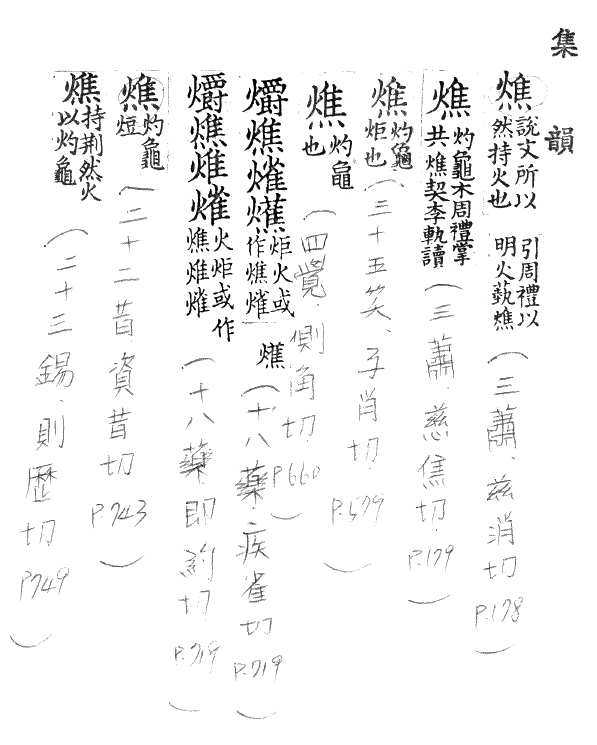 集韻
燋說文所以然持火也引周禮以明火爇燋(三蕭、茲消切P.178)
燋灼龜木周禮掌共燋契李軌讀(三蕭、慈焦切P.179)
燋灼龜炬也(三十五笑、子肖切P.579)
燋灼龜也(四覺、側角切P.660)
爝燋㸈蕉炬火或作燋㸈燋(十八藥、疾雀切P.719)
爝燋焳㸈火炬或作燋焳㸈(十八藥、即約切P.719)
燋灼龜炬(二十二昔資昔切P.743)
燋持荆然火以灼龜(二十三錫、則歷切P.749)